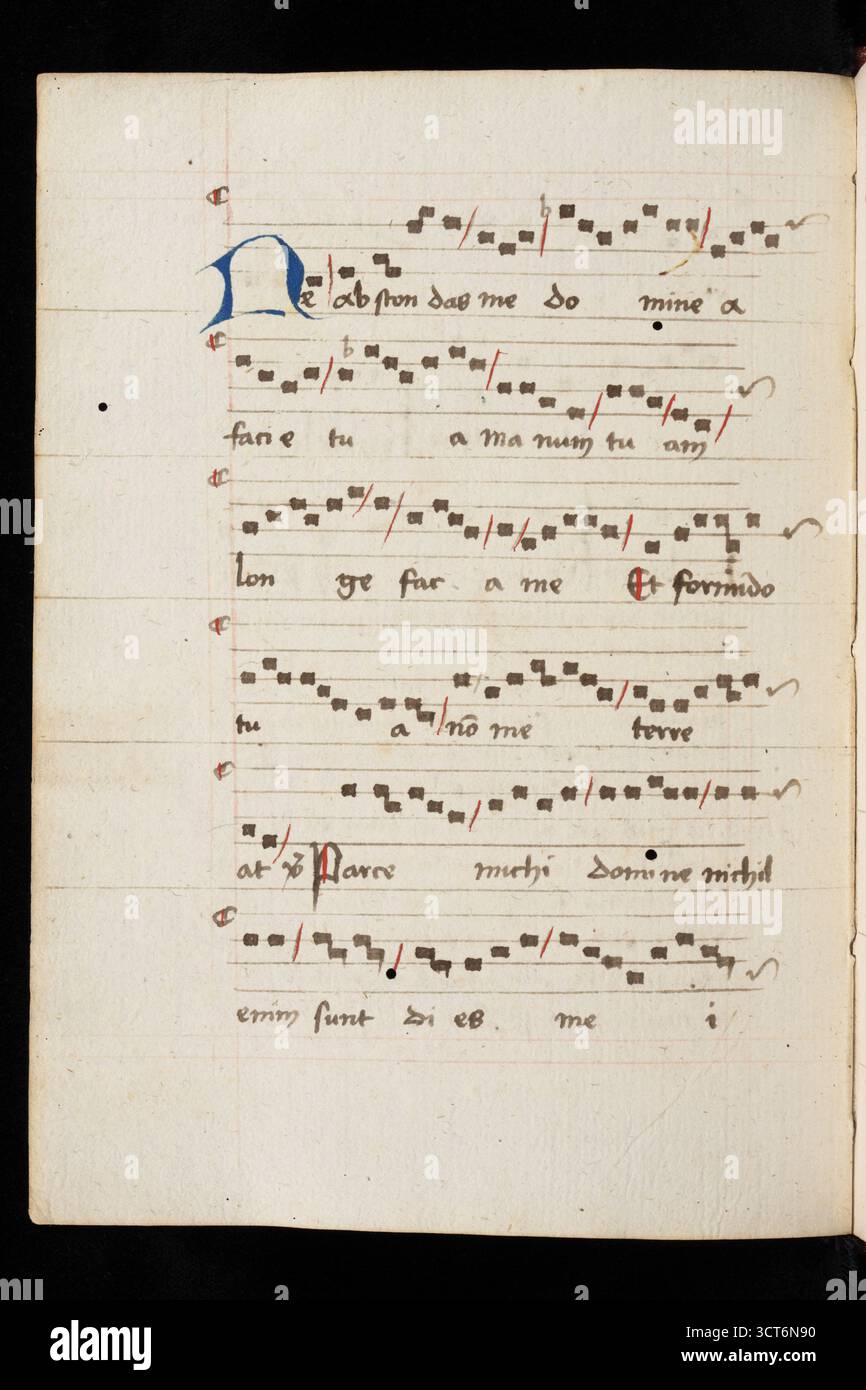 Ne abscon das me do mine a
faci e tu a ma num tu am
lon ge fac a me Et formido
tu a nō me terre
at Parce michi domine nichil
enim sunt di es me i
alamy
Image ID: 3CT6N90
www.alamy.com